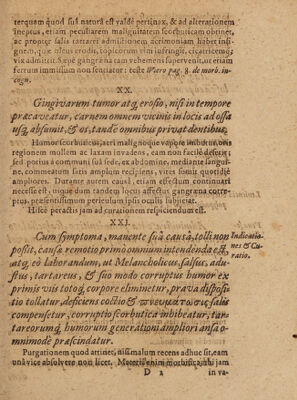 terquam quod suâ naturâ est valdè pertinax, & ad alterationem
ineptus, etiam peculiarem malignitatem scorbuticam obtinet,
ac propter salis tartarei admistionem acrimoniam habet insi-
gnem, quæ
vix admittit. Sæpè gangræna tam vehemens supervenit, ut etiam
ferrum immissum non sentiatur: teste Wiero pag. 8. de morb. in-
cogn.
XX.
Gingivarum tumor atq; erosio, nisi in tempore
præcaveatur, carnem omnem vicinis in locis ad ossa
usq; absumit, & os, tandē omnibus privat dentibus.
Humor scorbuticus, acri malignoque vapore imbutus, oris
regionem mollem ac laxam invadens, eam non facilè deserit:
sed potius à communi suâ sede, ex abdomine, mediante sangui-
ne, commeatum satis amplum recipiens, vires sumit quotidiè
ampliores. Durante autem causâ, etiam effectum continuari
necesse est, usque dum tandem locus affectus gangræna corre-
ptus, præsentissimum periculum ipsis oculis subjiciat.
Hisce peractis jam ad curationem respiciendum est.
XXI.
Cum symptoma, manente suâ causâ, tolli non
possit, causæ remotio primò omnium intendenda est,
atq; eò laborandum, ut Melancholicus, salsus, adu-
stus, tartareus, & suo modo corruptus humor ex
primis viis totoq; corpore eliminetur, prava disposi-
tio tollatur, deficiens coctio & πνευμάτωσις salis
compensetur, corruptio scorbutica inhibeatur, tar-
tareorumq; humorum generationi ampliori ansa o-
mnimodè præscindatur.
Indicatio-
nes & Cu-
ratio.
Purgationem quod attinet, nisi malum recens adhuc sit, eam
unâ vice absolvere non licet. Materiam enim morbificam hi jam
D 2 in va-